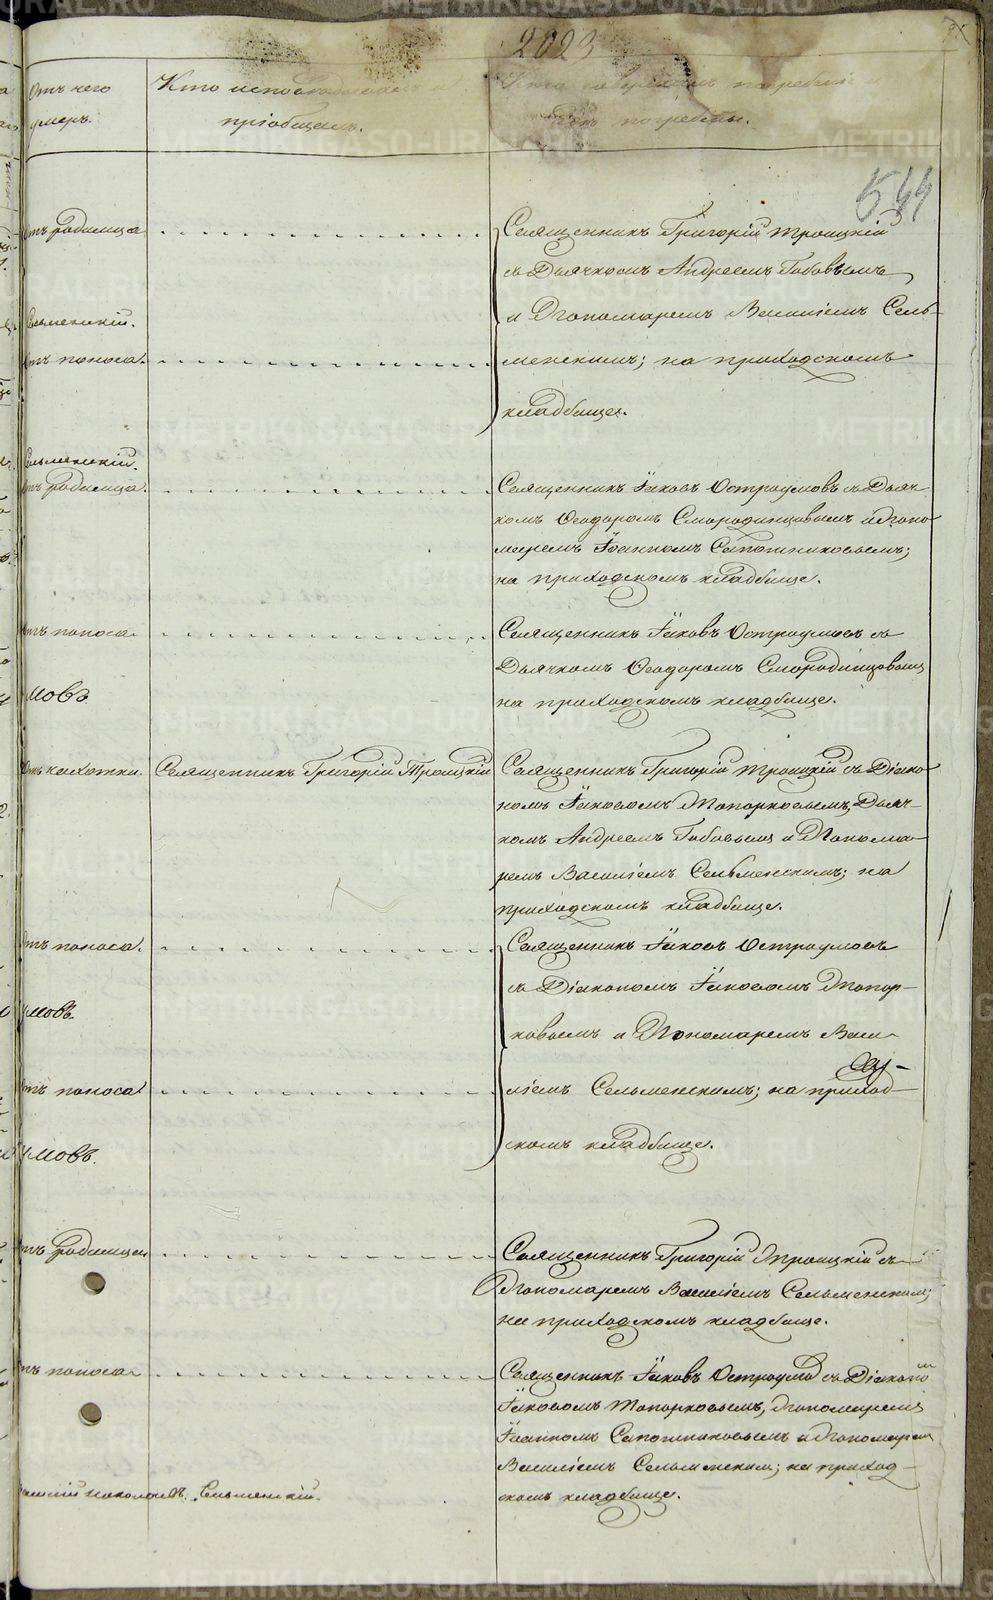 2023
544
Отъ чего
умеръ.
Кто исповѣдывалъ и
пріобщалъ.
Кто совершалъ погребеніе
погребены.
Отъ родимца
Священникъ Григорій Троицкій
съ Дьячкомъ Андреемъ Бабовымъ
Сельменскій.
и Пономаремъ Василіемъ Сель-
Отъ поноса.
менскимъ; на приходскомъ
кладбище.
Сельменскій.
Отъ родимца.
Священникъ Іаковъ Остроумовъ съ Дьяч-
комъ Ѳеодоромъ Смородинцовымъ и Поно-
маремъ Іоанномъ Сапожниковымъ;
на приходскомъ кладбище.
Отъ поноса
Священникъ Іаковъ Остроумовъ съ
Дьячкомъ Ѳеодоромъ Смородинцовымъ
мовъ
на приходскомъ кладбище.
Отъ чахотки.
Священникъ Григорій Троицкій
Священникъ Григорій Троицкій съ Діако-
номъ Іаковомъ Топорковымъ, Дьяч-
комъ Андреемъ Бабовымъ и Понома-
ремъ Василіемъ Сельменскимъ; на
приходскомъ кладбище.
Отъ поноса.
Священникъ Іаковъ Остроумовъ
съ Діакономъ Іаковомъ Топор-
умовъ.
ковымъ и Пономаремъ Васи-
Отъ поноса
ліемъ Сельменскимъ; на приход-
умовъ.
скомъ кладбище.
Отъ родимца
Священникъ Григорій Троицкій съ
Пономаремъ Василіемъ Сельменскимъ;
на приходскомъ кладбище.
Отъ поноса
Священникъ Іаковъ Остроумов съ Діаконом
Іаковомъ Топорковымъ, Пономаремъ
Іоанномъ Сапожниковымъ и Пономарем
Василіемъ Сельменским; на приход-
Сельменскій.
скомъ кладбище.
METRIKI.GASO-URAL.RU